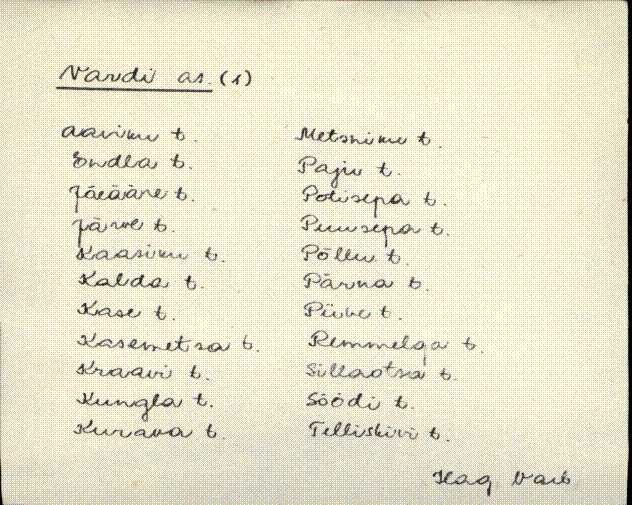 Nardi as. (1)
Aaviku t.
Endla t.
Jäeääre t.
Järve t.
Kaasiku t.
Kalda t.
Kase t.
Kasemetsa t.
Kraavi t.
Kungla t.
Kurava t.
Metsniku t.
Paju t.
Potisepa t.
Puusepa t.
Põllu t.
Pärna t.
Piibe t.
Remmelga t.
Sillaotsa t.
Söödi t.
Telliskivi t.
Hag